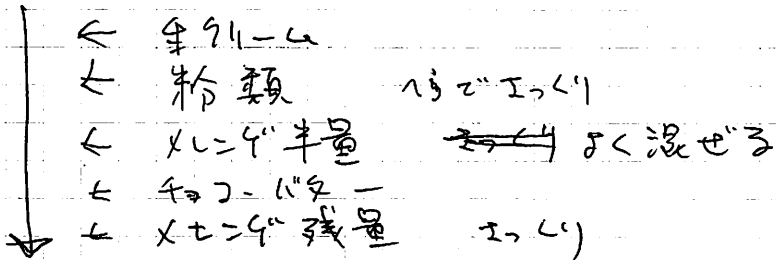 ← 生クリーム
← 粉類 へらでさっくり
← メレンゲ半量 さっくり よく混ぜる
← チョコ・バター
← メレンゲ残量 さっくり